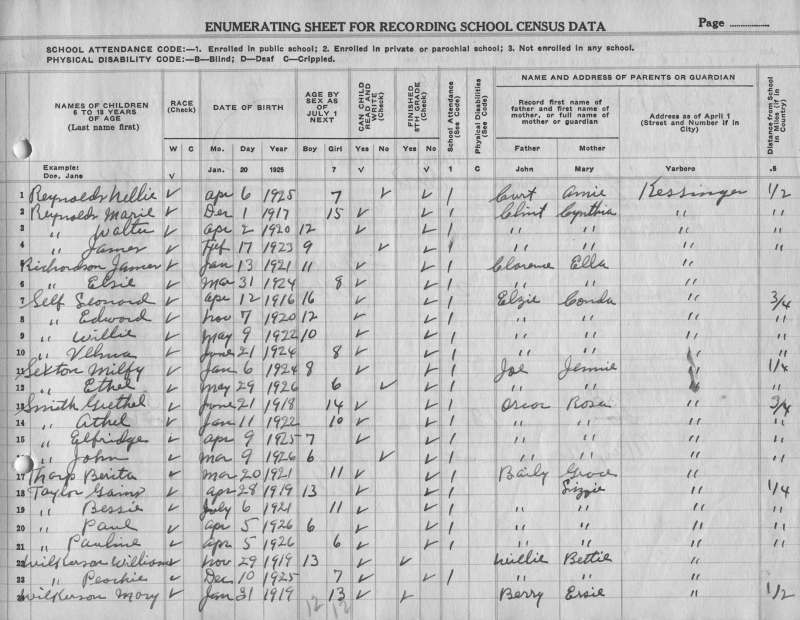 ENUMERATING SHEET FOR RECORDING SCHOOL CENSUS DATA Page
SCHOOL ATTENDANCE CODE:—1. Enrolled in public school; 2. Enrolled in private or parochial school; 3. Not enrolled in any school.
PHYSICAL DISABILITY CODE:—B—Blind; D—Deaf C—Crippled.
NAMES OF CHILDREN 6 TO 18 YEARS OF AGE (Last name first) RACE (Check) DATE OF BIRTH AGE BY SEX AS OF JULY 1 NEXT CAN CHILD READ AND WRITE (Check) FINISHED 8TH GRADE (Check) School Attendance (See Code) Physical Disabilities (See Code) NAME AND ADDRESS OF PARENTS OR GUARDIAN Distance from School in Miles (if in Country)
Record first name of father and first name of mother, or full name of mother or guardian Address as of April 1 (Street and Number if in City)
W C Mo. Day Year Boy Girl Yes No Yes No Father Mother
Example: Doe, Jane V Jan. 20 1925 7 V V 1 C John Mary Yarboro .5
1 Reynolds Nellie ✓ apr 6 1925 7 ✓ ✓ 1 Curt Amie Kessinger 1/2
2 Reynolds Marie ✓ Dec 1 1917 15 ✓ ✓ 1 Clint Cynthia " "
3 " Walter ✓ apr 2 1920 12 ✓ ✓ 1 " " " "
4 " James ✓ Feb 17 1923 9 ✓ ✓ 1 " " " "
5 Richardson James ✓ Jan 13 1921 11 ✓ ✓ 1 Clarence Ella "
6 " Elsie ✓ Mar 31 1924 8 ✓ ✓ 1 " " "
7 Self Leonard ✓ apr 12 1916 16 ✓ ✓ 1 Elzie Conda " 3/4
8 " Edward ✓ nov 7 1920 12 ✓ ✓ 1 " " " "
9 " Willie ✓ may 9 1922 10 ✓ ✓ 1 " " " "
10 " Velma ✓ June 21 1924 8 ✓ ✓ 1 " " " "
11 Sexton Milfy ✓ Jan 6 1924 8 ✓ ✓ 1 Joe Jennie " 1/4
12 " Ethel ✓ may 29 1926 6 ✓ ✓ 1 " " "
13 Smith Grethel ✓ June 21 1918 14 ✓ ✓ 1 Oscar Rosa " 3/4
14 " Athel ✓ Jan 11 1922 10 ✓ ✓ 1 " " " "
15 " Elfridge ✓ apr 9 1925 7 ✓ ✓ 1 " " " "
" John ✓ Mar 9 1926 6 ✓ ✓ 1 " " " "
17 Tharp Berita ✓ Mar 20 1921 11 ✓ ✓ 1 Baily Grace "
18 Taylor ✓ apr 28 1919 13 ✓ ✓ 1 Lizzie " 1/4
19 " Bessie ✓ July 6 1921 11 ✓ ✓ 1 " " " "
20 " Paul ✓ apr 5 1926 6 ✓ ✓ 1 " " " "
21 " Pauline ✓ apr 5 1926 6 ✓ ✓ 1 " " " "
22 Wilkerson William ✓ nov 29 1919 13 ✓ ✓ Willie Bettie "
23 " Peachie ✓ Dec 10 1925 7 ✓ ✓ 1 " " "
Wilkerson Mary ✓ Jan 31 1919 13 ✓ ✓ Berry Ersie " 1/2
12 12